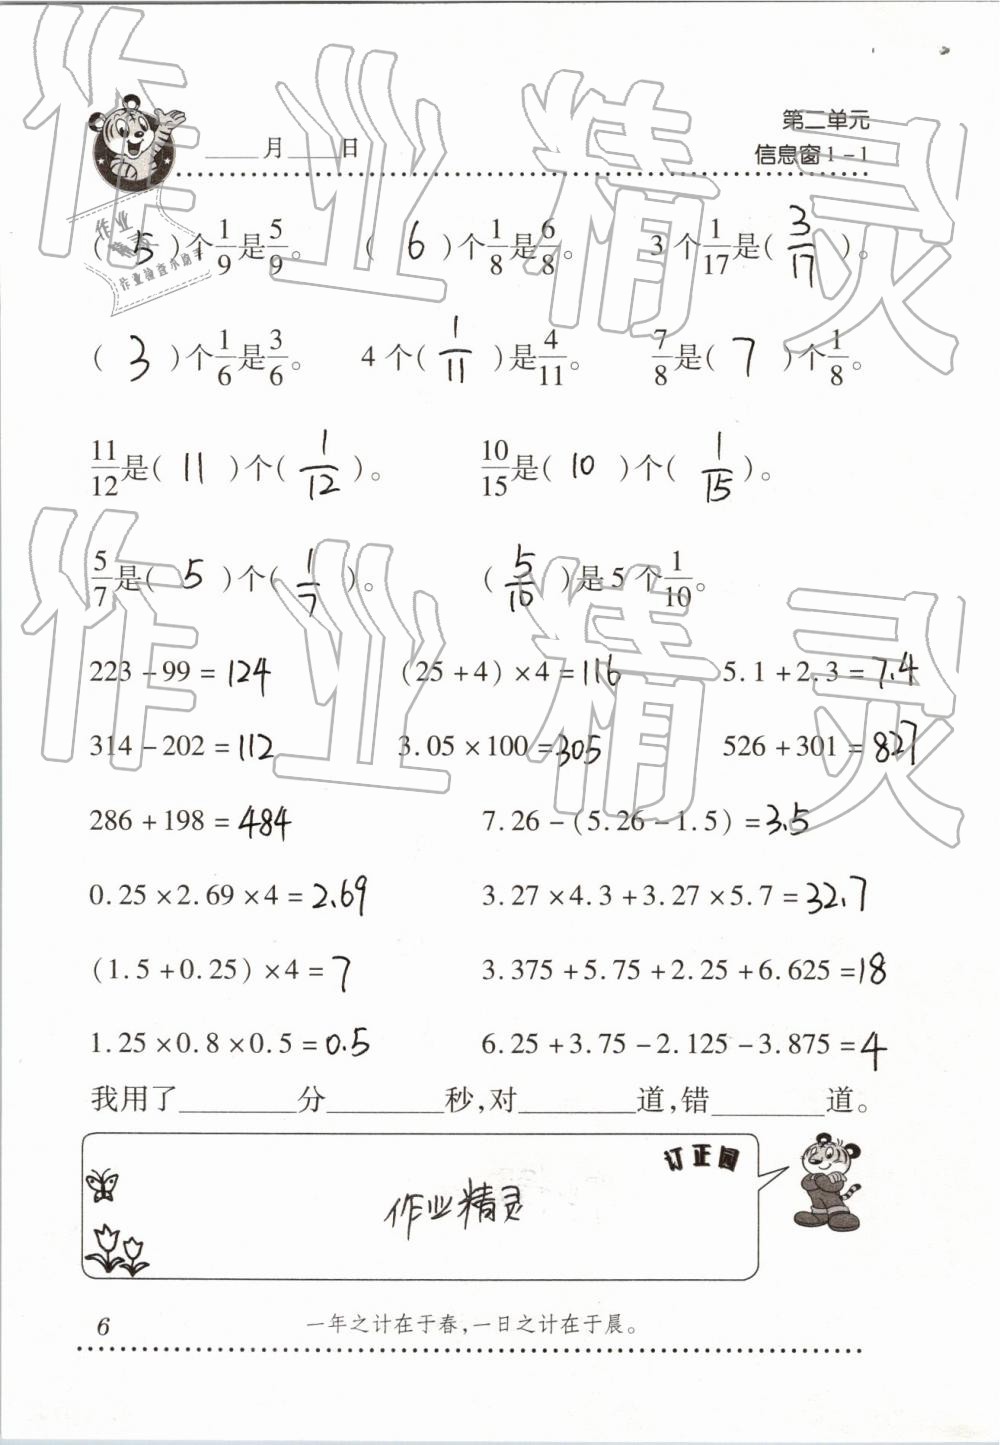 第二单元
____月____日 信息窗1-1
( 5 )个1/9是5/9。 ( 6 )个1/8是6/8。 3个1/17是( 3/17 )。
( 3 )个1/6是3/6。 4个( 1/11 )是4/11。 7/8是( 7 )个1/8。
11/12是( 11 )个( 1/12 )。 10/15是( 10 )个( 1/15 )。
5/7是( 5 )个( 1/7 )。 ( 5/10 )是5个1/10。
223-99=124 (25+4)×4=116 5.1+2.3=7.4
314-202=112 3.05×100=305 526+301=827
286+198=484 7.26-(5.26-1.5)=3.5
0.25×2.69×4=2.69 3.27×4.3+3.27×5.7=32.7
(1.5+0.25)×4=7 3.375+5.75+2.25+6.625=18
1.25×0.8×0.5=0.5 6.25+3.75-2.125-3.875=4
我用了________分________秒,对________道,错________道。
订正园
作业精灵
6 一年之计在于春,一日之计在于晨。
作业精灵
作业精灵
作业
作业检查小助手